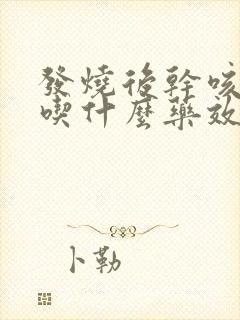 發燒後幹咳
喫什麼藥效
卜勒